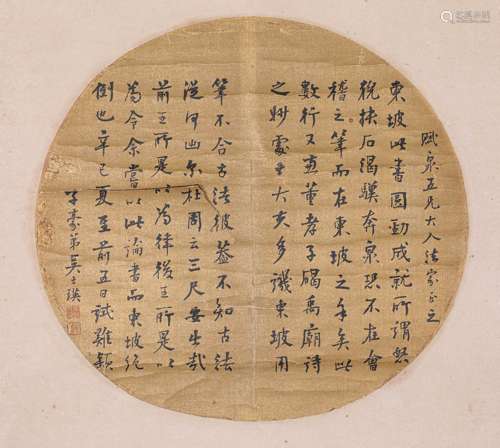 賦泉五兄大人法家正之
東坡此書圓勁成就所謂怒
猊抉石渴驥奔泉恐不在會
稽之筆而在東坡之手矣此
數行又兼董孝子碣禹廟詩
之妙處士大夫多譏東坡用
筆不合古法彼蓋不知古法
從何出尔杜周云三尺安出哉
前王所是以為律後王所是以
為令余嘗以此論書而東坡絕
倒也辛巳夏至前五日試雞穎
子豪弟吳士瑛